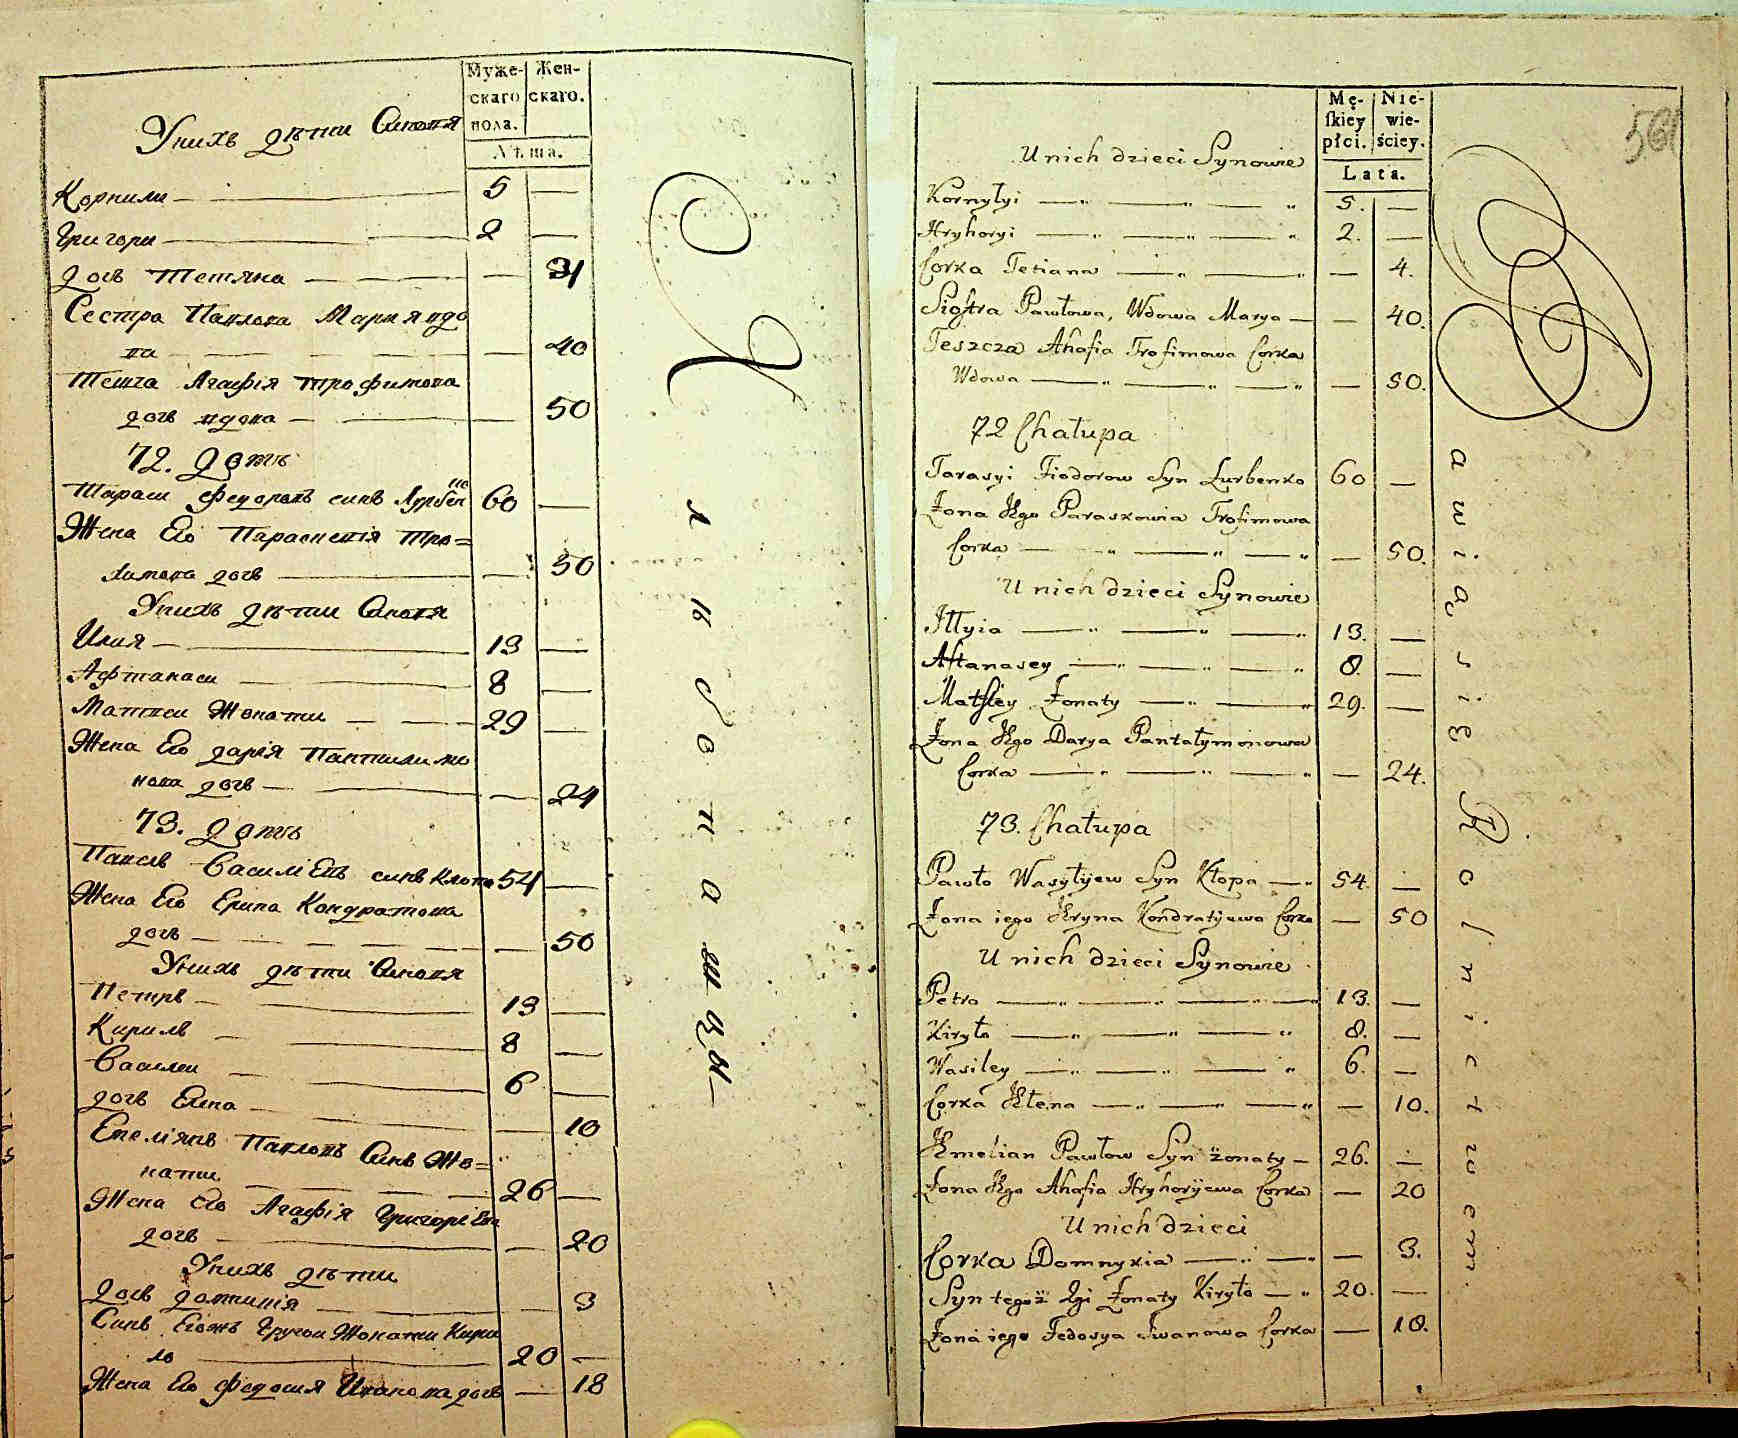 Муже-
скаго
пола.
Жен-
скаго.
Лѣта.
Унихъ дѣти Синовя
Корнили 5
Григори 2
дочь Тетяна
Сестра Павлова Мария вдо
ва 40
Тешча Агафія Трофимова
дочь вдова 50
72. Домъ
Тараси Федоровъ синъ Лурбен
ко 60
Жена Его Парасковія Тро=
химова дочь 50
Унихъ дѣти Синовя
Илия 13
Афтанаси 8
Матвеи Жонати 29
Жена Его дарія Пантилимо
нова дочь 24
73. Домъ
Павелъ Василіевъ синъ Клопа 54
Жена Его Ерина Кондратова
дочь 50
Унихъ дѣти Синовя
Петръ 13
Кирилъ 8
Василеи 6
дочь Елена 10
Емеліянъ Павловъ Синъ Жо=
нати 26
Жена Его Агафія Григоріева
дочь 20
Унихъ дѣти
дочь домникія 3
Синъ Егожъ другои Жонати Кири
ло 20
Жена Его Федосия Иванова дочь 18
Хлѣбопашцы
561
Mę-
skiey
płci.
Nie-
wie-
ściey.
Lata.
U nich dzieci Synowie
Kornyłyi 5.
Hryhoryi 2.
Corka Tetiana 4.
Siostra Pawłowa, Wdowa Marya 40.
Teszcza Ahafia Trofimowa Corka
Wdowa 50.
72 Chałupa
Tarasyi Fiodorow Syn Lurbenko 60
Żona Jego Paraskowia Trofimowa
Corka 50.
U nich dzieci Synowie
Illyia 13.
Aftanasey 8.
Matfiey Żonaty 29.
Żona Jego Darya Pantałymonowa
Corka 24.
73. Chałupa
Pawło Wasyłyjew Syn Kłopa 54.
Żona iego Jryna Kondratijewa Corka 50
U nich dzieci Synowie
Petro 13.
Kiryło 8.
Wasiley 6.
Corka Jłena 10.
Jmelian Pawłow Syn żonaty 26.
Żona Jego Ahafia Hryhoryjewa Corka 20
U nich dzieci
Corka Domnykia 3.
Syn tegoż 2gi Żonaty Kiryło 20.
Żona iego Fedosya Jwanowa Corka 18.
Bawią się Rolnictwem.